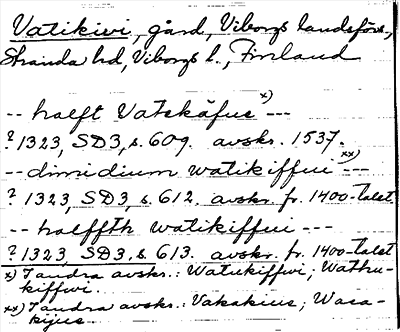 Vatikivi, gård, Viborgs landsförs.,
Stranda hd, Viborgs l., Finland
-- halft Vatskäfue x) ---
? 1323, SD3, s. 609. avskr. 1537.
-- dimidium watikiffui xx) ---
? 1323, SD3, s. 612. avskr. fr. 1400-talet
-- halffth watikiffui ---
? 1323, SD3, s. 613. avskr. fr. 1400-talet
x) I andra avskr.: Watukiffwi; Wathu-
kiffwi.
xx) I andra avskr.: Vakakius; Waca-
kijus.